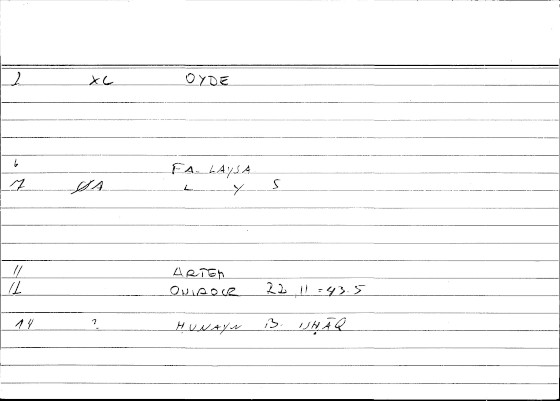 1 XL OYDE
6 FA-LAYSA
7 ØA L Y S
11 ARTEM
12 ONIROCR 22,11 = 43.5
14 ? ḤUNAYN B. ISḤĀQ